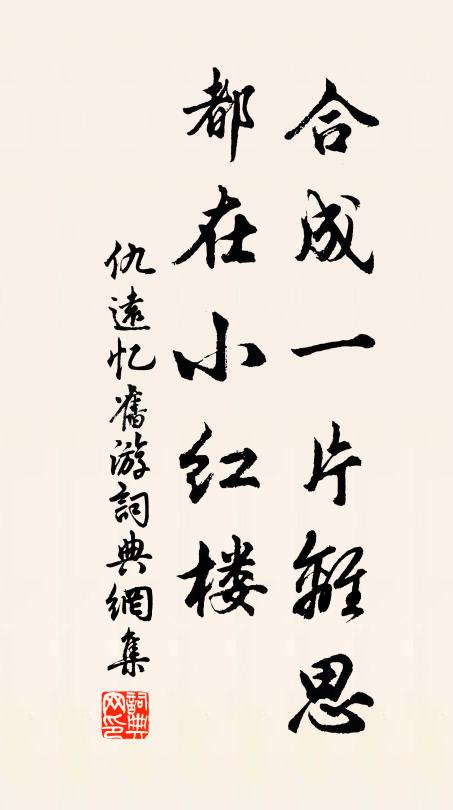 合成一片離思
都在小红楼
仇遠忆舊游詞典網集
詞典网印